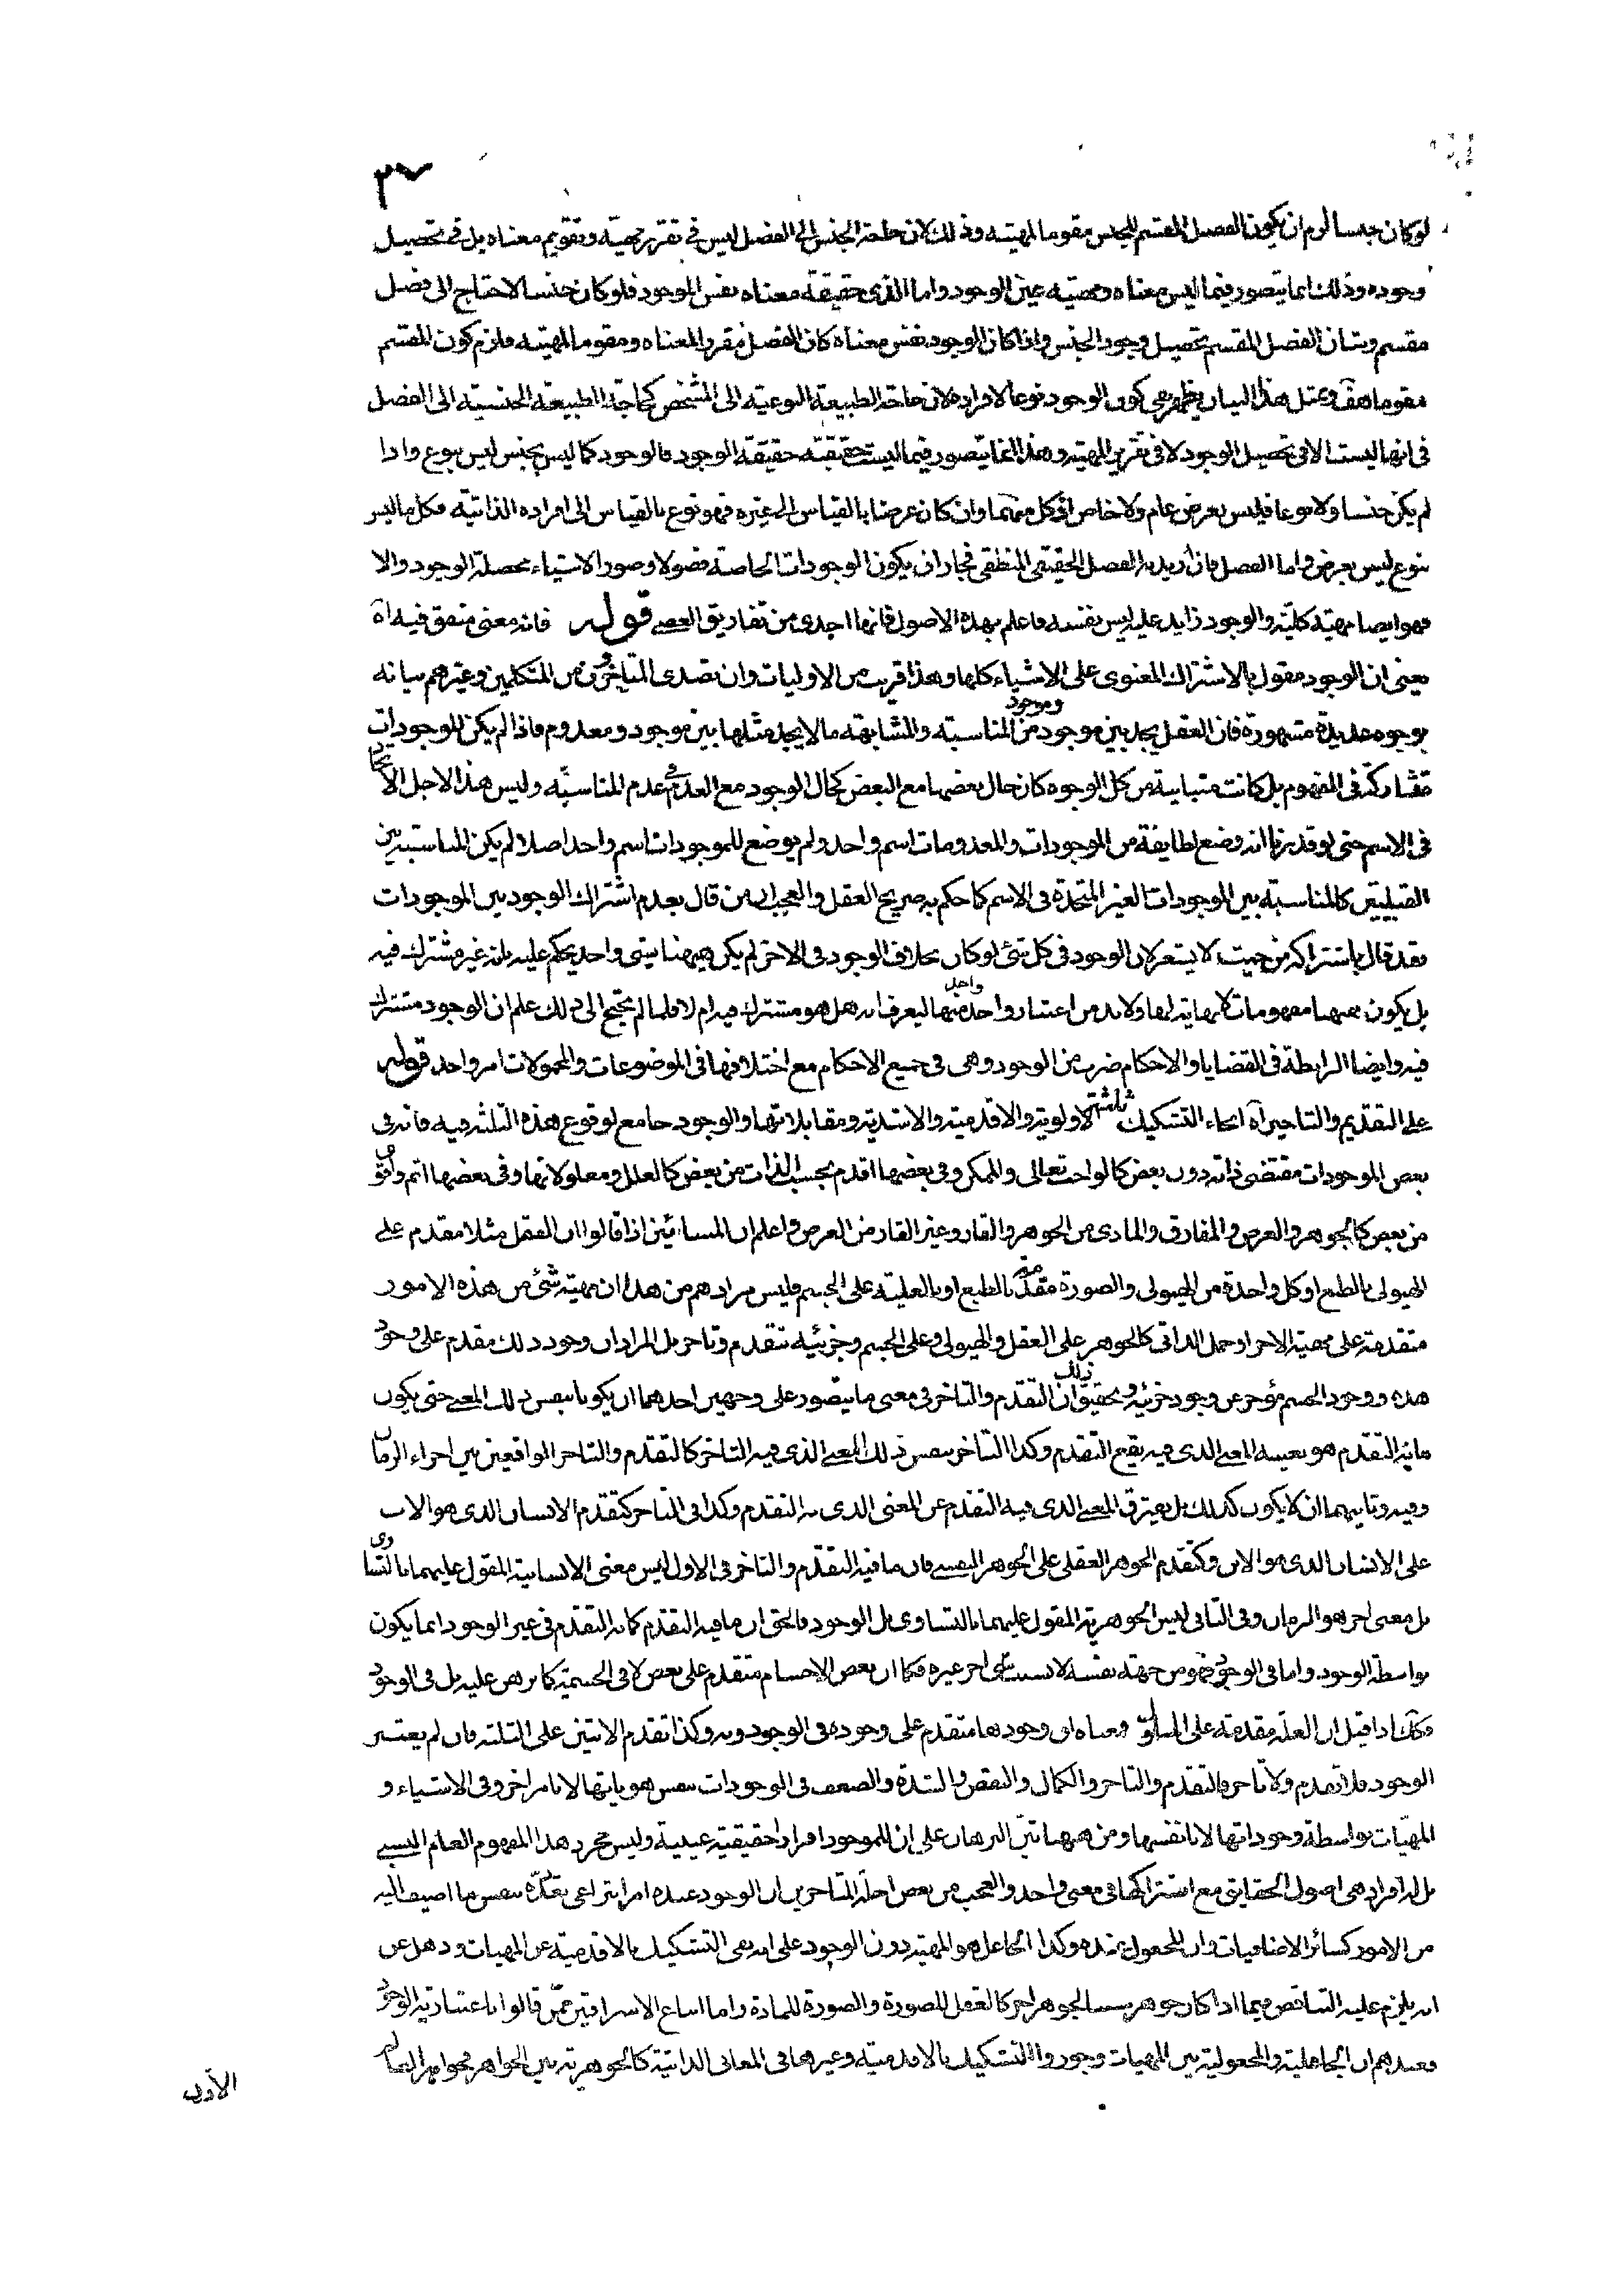 ٣٧
لو كان جنسا لزم ان يكون الفصل المقسم للجنس مقوما لمهيته وذلك لان حاجة الجنس الى الفصل ليس فى تقرير مهيته وتقويم معناه بل فى تحصيل
وجوده وذلك انما يتصور فيما ليس معناه ومهيته عين الوجود واما الذى حقيقة معناه نفس الموجود فلو كان جنسا لاحتاج الى فصل
مقسم وشان الفصل المقسم تحصيل وجود الجنس واذا كان الوجود نفس معناه كان الفصل مقررا لمعناه ومقوما لمهيته فلزم كون المقسم
مقوما هف وبمثل هذا البيان يظهر نفى كون الوجود نوعا لافراده لان حاجة الطبيعة النوعية الى المشخص كحاجة الطبيعة الجنسية الى الفصل
فى انها ليست الا فى تحصيل الوجود لا فى تقرير المهية وهذا انما يتصور فيما ليست حقيقته حقيقة الوجود فالوجود كما ليس بجنس ليس بنوع واذا
لم يكن جنسا ولا نوعا فليس بعرض عام ولا خاص اذ كل منهما وان كان عرضا بالقياس الى غيره فهو نوع بالقياس الى افراده الذاتية فكل ما ليس
بنوع ليس بعرض واما الفصل فان اريد به الفصل الحقيقى المنطقى فجاز ان يكون الوجودات الخاصة فصولا وصور الاشياء محصلة الوجود والا
فهو ايضا مهية كلية والوجود زايد عليه ليس نفسه فاعلم بهذه الاصول فانها اجدى من تفاريق العصى قوله فانه معنى متفق فيه آه
يعنى ان الوجود مقول بالاشتراك المعنوى على الاشياء كلها وهذا قريب من الاوليات وان تصدى المتاخرون من المتكلمين وغيرهم بيانه
بوجوه عديدة مشهورة فان العقل يجد بين موجود وموجود من المناسبة والمشابهة ما لا يجد مثلها بين موجود ومعدوم فاذا لم يكن للموجودات
متشاركة فى المفهوم بل كانت متباينة من كل الوجوه كان حال بعضها مع البعض كحال الوجود مع العدم فى عدم المناسبة وليس هذا لاجل الاتحاد
فى الاسم حتى لو قدرنا انه وضع لطايفة من الموجودات والمعدومات اسم واحد ولم يوضع للموجودات اسم واحد اصلا لم يكن المناسبة بين
القبيلتين كالمناسبة بين الموجودات الغير المتحدة فى الاسم كما حكم به صريح العقل والعجب ان من قال بعدم اشتراك الوجود بين الموجودات
فقد قال باشتراكه من حيث لا يشعر لان الوجود فى كل شئ لو كان بخلاف الوجود فى الاخر لم يكن هيهنا شئ واحد يحكم عليه بانه غير مشترك فيه
بل يكون هيهنا مفهومات لا نهاية لها ولا بد من اعتبار واحد واحد منها ليعرف انه هل هو مشترك فيه ام لا فلما لم يحتج الى ذلك علم ان الوجود مشترك
فيه وايضا الرابطة فى القضايا والاحكام ضرب من الوجود وهى فى جميع الاحكام مع اختلافها فى الموضوعات والمحمولات امر واحد قوله
على التقديم والتاخير آه انحاء التشكيك ثلثة الاولوية والاقدمية والاشدية ومقابلاتها والوجود جامع لوقوع هذه الثلثة فيه فانه فى
بعض الموجودات مقتضى ذاته دون بعض كالواجب تعالى والممكن وفى بعضها اقدم بحسب الذات من بعض كالعلل ومعلولاتها وفى بعضها اتم واقوى
من بعض كالجوهر والعرض والمفارق والمادى من الجوهر والقار وغير القار من العرض واعلم ان المشائين اذا قالوا ان العقل مثلا مقدم على
الهيولى بالطبع او كل واحدة من الهيولى والصورة متقدمة بالطبع او بالعلية على الجسم فليس مرادهم من هذا ان مهية شئ من هذه الامور
متقدمة على مهية الاخر او حمل الذاتى كالجوهر على العقل والهيولى وعلى الجسم وجزئيه بتقدم وتاخر بل المراد ان وجود ذلك مقدم على وجود
هذه ووجود الجسم مؤخر عن وجود جزئيه وتحقيق ذلك ان التقدم والتاخر فى معنى ما يتصور على وجهين احدهما ان يكونا بنفس ذلك المعنى حتى يكون
ما به التقدم هو بعينه المعنى الذى فيه يقع التقدم وكذا التاخر بنفس ذلك المعنى الذى فيه التاخر كالتقدم والتاخر الواقعين بين اجزاء الزمان
وفيه وثانيهما ان لا يكون كذلك بل يفترق المعنى الذى فيه التقدم عن المعنى الذى به التقدم وكذا فى التاخر كتقدم الانسان الذى هو الاب
على الانسان الذى هو الابن وكتقدم الجوهر العقلى على الجوهر النفسى فان ما فيه التقدم والتاخر فى الاول ليس معنى الانسانية المقول عليهما بالتساوى
بل معنى اخر هو الزمان وفى الثانى ليس الجوهرية المقول عليهما بالتساوى بل الوجود فالحق ان ما فيه التقدم كما به التقدم فى غير الوجود انما يكون
بواسطة الوجود. واما فى الوجود فهو من جهة نفسه لا بسبب شئ اخر غيره فكما ان بعض الاجسام متقدم على بعض لا فى الجسمية كما برهن عليه بل فى الوجود
فكك اذا قيل ان العلة مقدمة على المعلول فمعناه ان وجودها متقدم على وجوده فى الوجود وبه وكذا تقدم الاثنين على الثلثة فان لم يعتبر
الوجود فلا تقدم ولا تاخر فالتقدم والتاخر والكمال والنقص والشدة والضعف فى الوجودات بنفس هوياتها لا بامر اخر وفى الاشياء و
المهيّات بواسطة وجوداتها لا بانفسها ومن هيهنا تبين البرهان على ان للموجود افرادا حقيقية عينية وليس مجرد هذا المفهوم العام النسبى
بل له افراد هى اصول الحقايق مع اشتراكها فى معنى واحد والعجب من بعض اجلة المتاخرين ان الوجود عنده امر انتزاعى تعدده بنفس ما اضيف اليه
من الامور كسائر الاضافيات وان المجعول عنده وكذا الجاعل هو المهية دون الوجود على انه نفى التشكيك بالاقدمية عن المهيات وذهل عن
انه يلزم عليه التناقض فيما اذا كان جوهر سببا لجوهر اخر كالعقل للصورة والصورة للمادة واما اتباع الاشراقيين ممن قالوا باعتبارية الوجود
فعندهم ان الجاعلية والمجعولية بين المهيات وجوزوا التشكيك بالاقدمية وغيرها فى المعانى الذاتية كالجوهرية بين الجواهر فجواهر العالم
الأدون